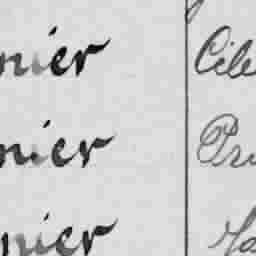 nier Cile
nier Pri
nier Ha